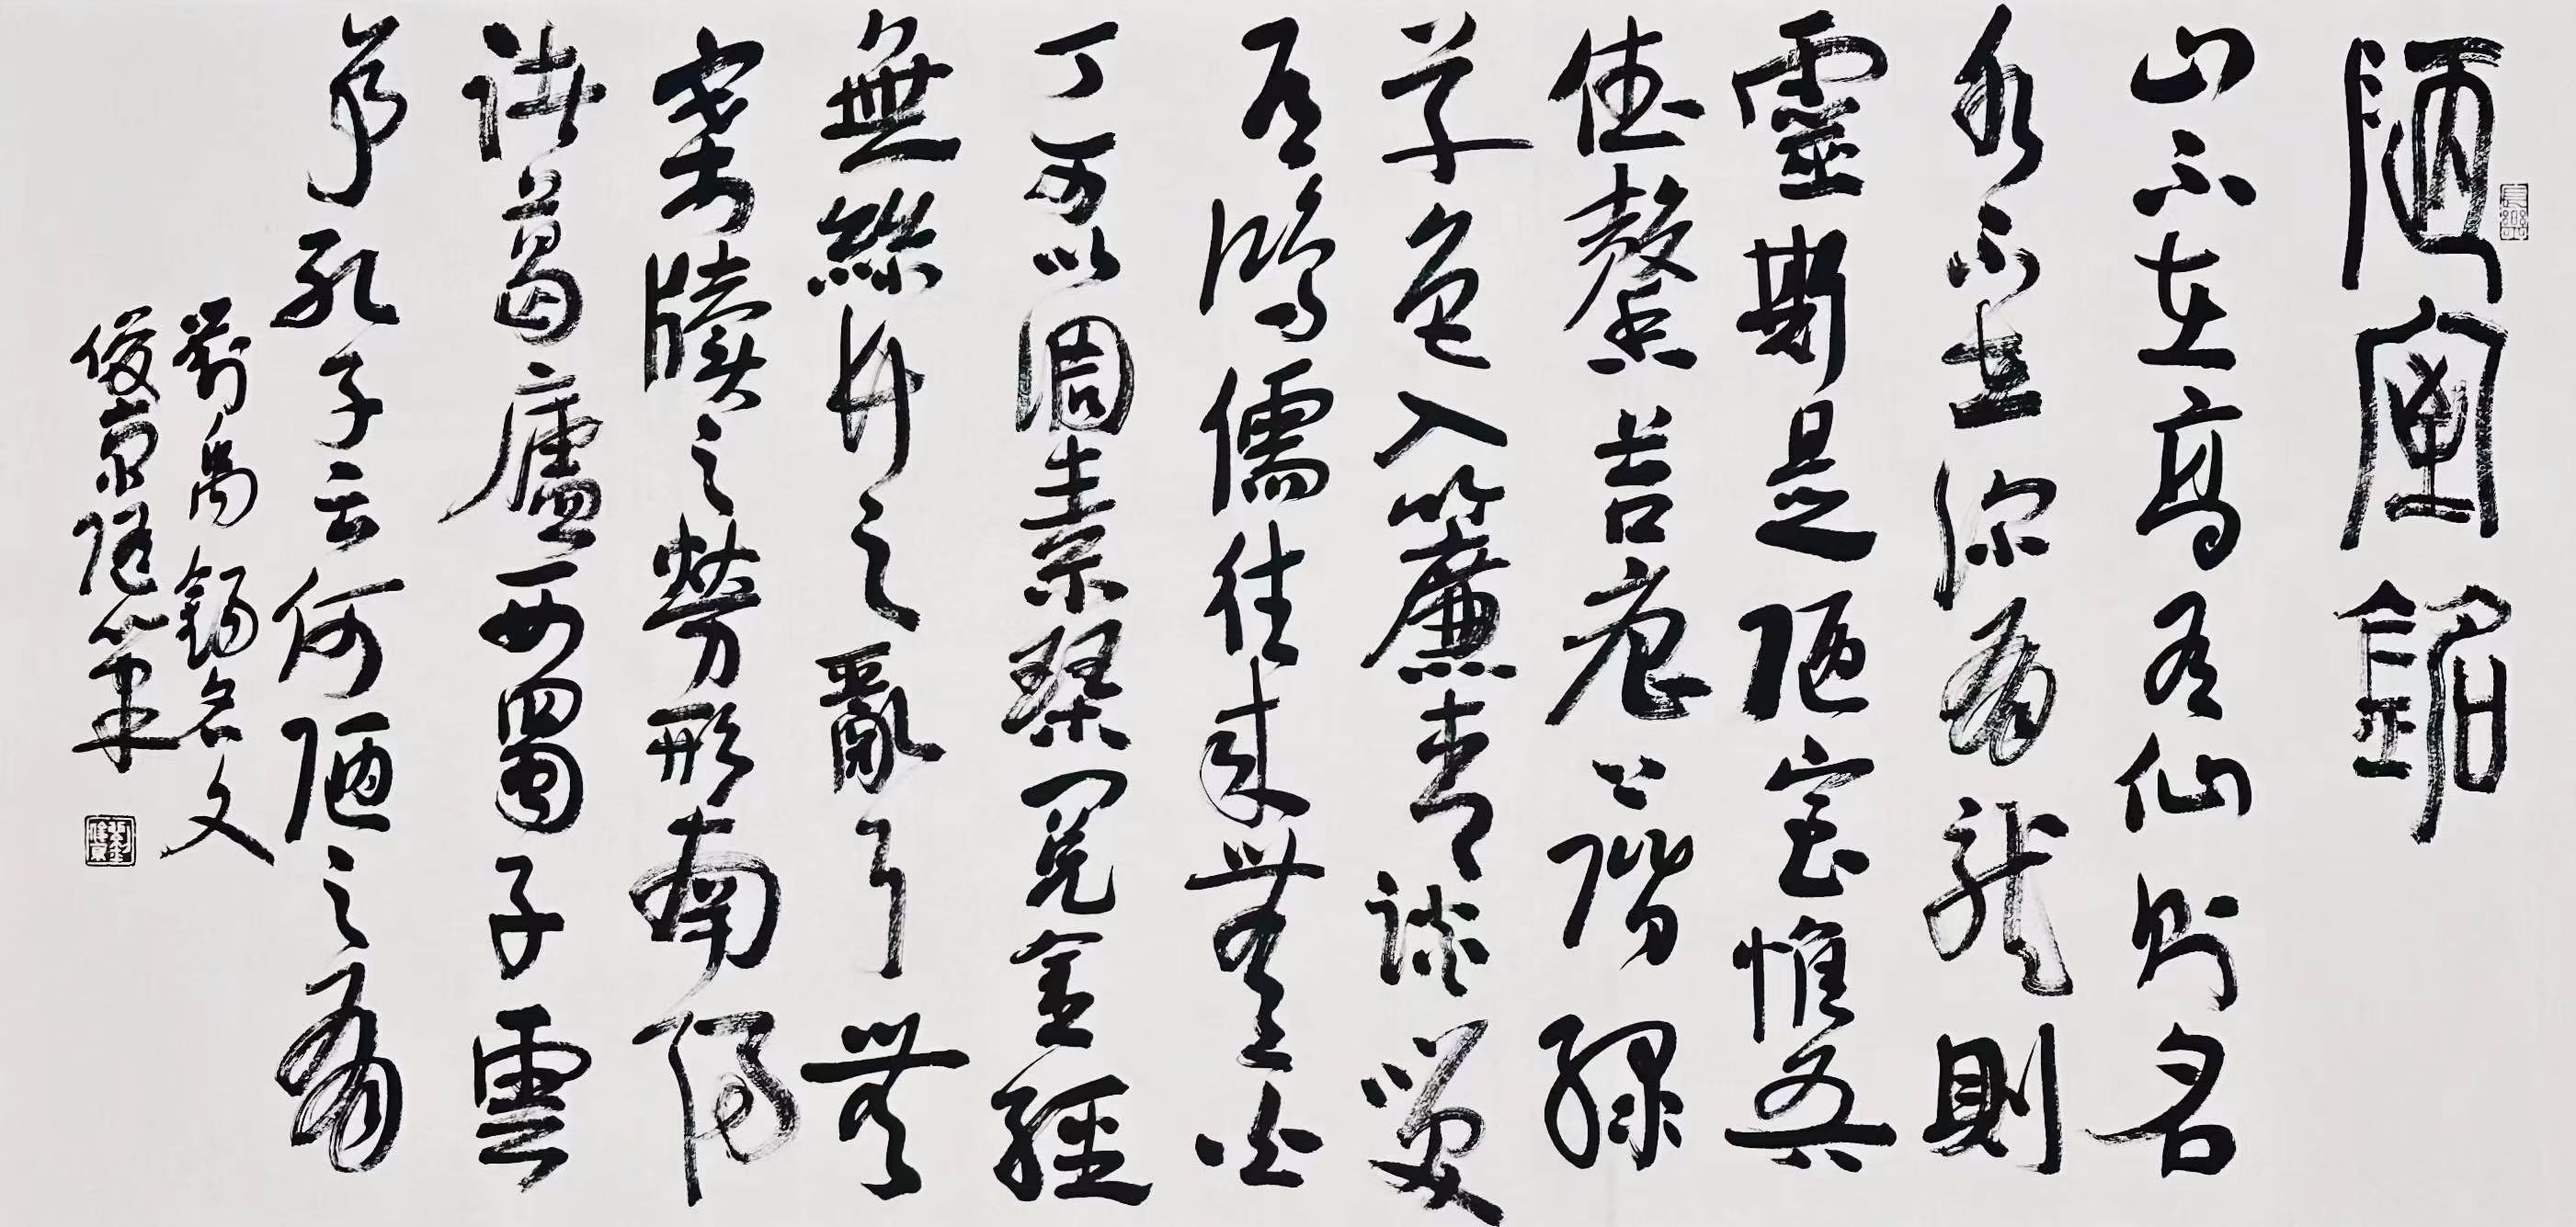 陋室銘
山不在高有仙則名
水不在深有龍則
靈斯是陋室惟吾
德馨苔痕上階綠
草色入簾青談笑
有鴻儒往來無白
丁可以調素琴閱金經
無絲竹之亂耳無
案牘之勞形南陽
諸葛廬西蜀子雲
亭孔子云何陋之有
劉禹錫名文
俊京隨筆